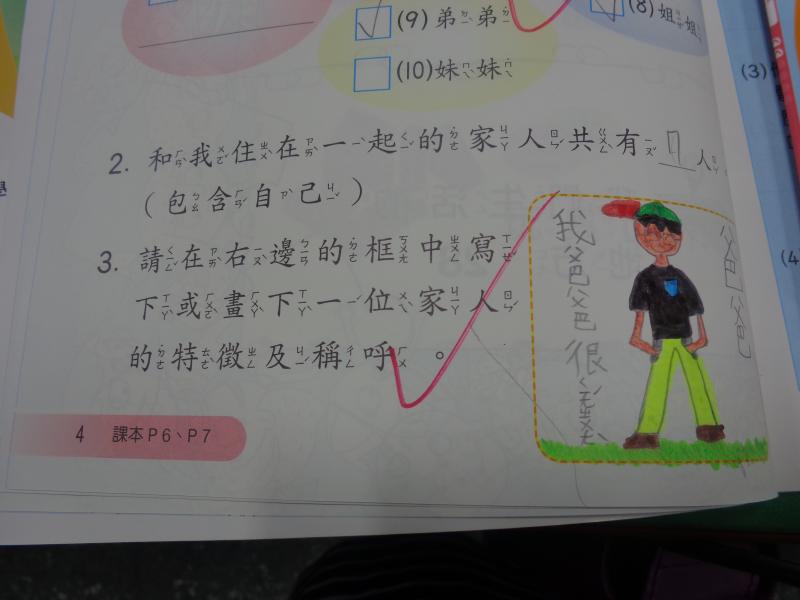 (9)弟弟
(8)姐姐
(10)妹妹
(3)
2. 和我住在一起的家人共有 人。
(包含自己)
3. 請在右邊的框中寫
下或畫下一位家人
的特徵及稱呼。
我爸爸很
爸爸
4 課本P6、P7
(4